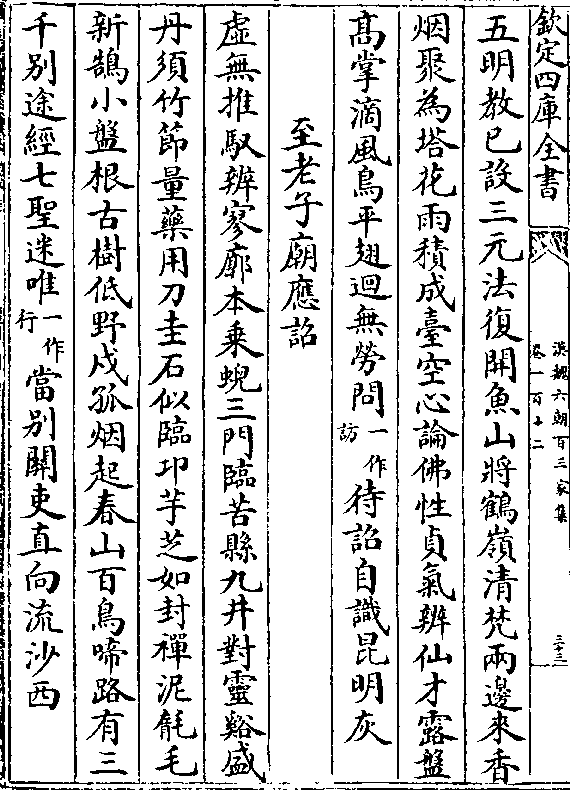 欽定四庫全書
漢魏六朝百三家集
卷一百十二
三十三
五明教已設三元法復開魚山將鶴嶺清梵兩邊來香
烟聚為塔花雨積成臺空心論佛性貞氣辨仙才露盤
髙掌滴風鳥平翅迴無勞問一作訪待詔自識昆明灰
至老子廟應詔
虛無推馭辨寥廓本乗蜺三門臨苦縣九井對靈谿盛
丹須竹節量藥用刀圭石似臨卭芋芝如封禪泥毻毛
新鵠小盤根古樹低野戍孤烟起春山百鳥啼路有三
千别途經七聖迷唯一作行當别關吏直向流沙西